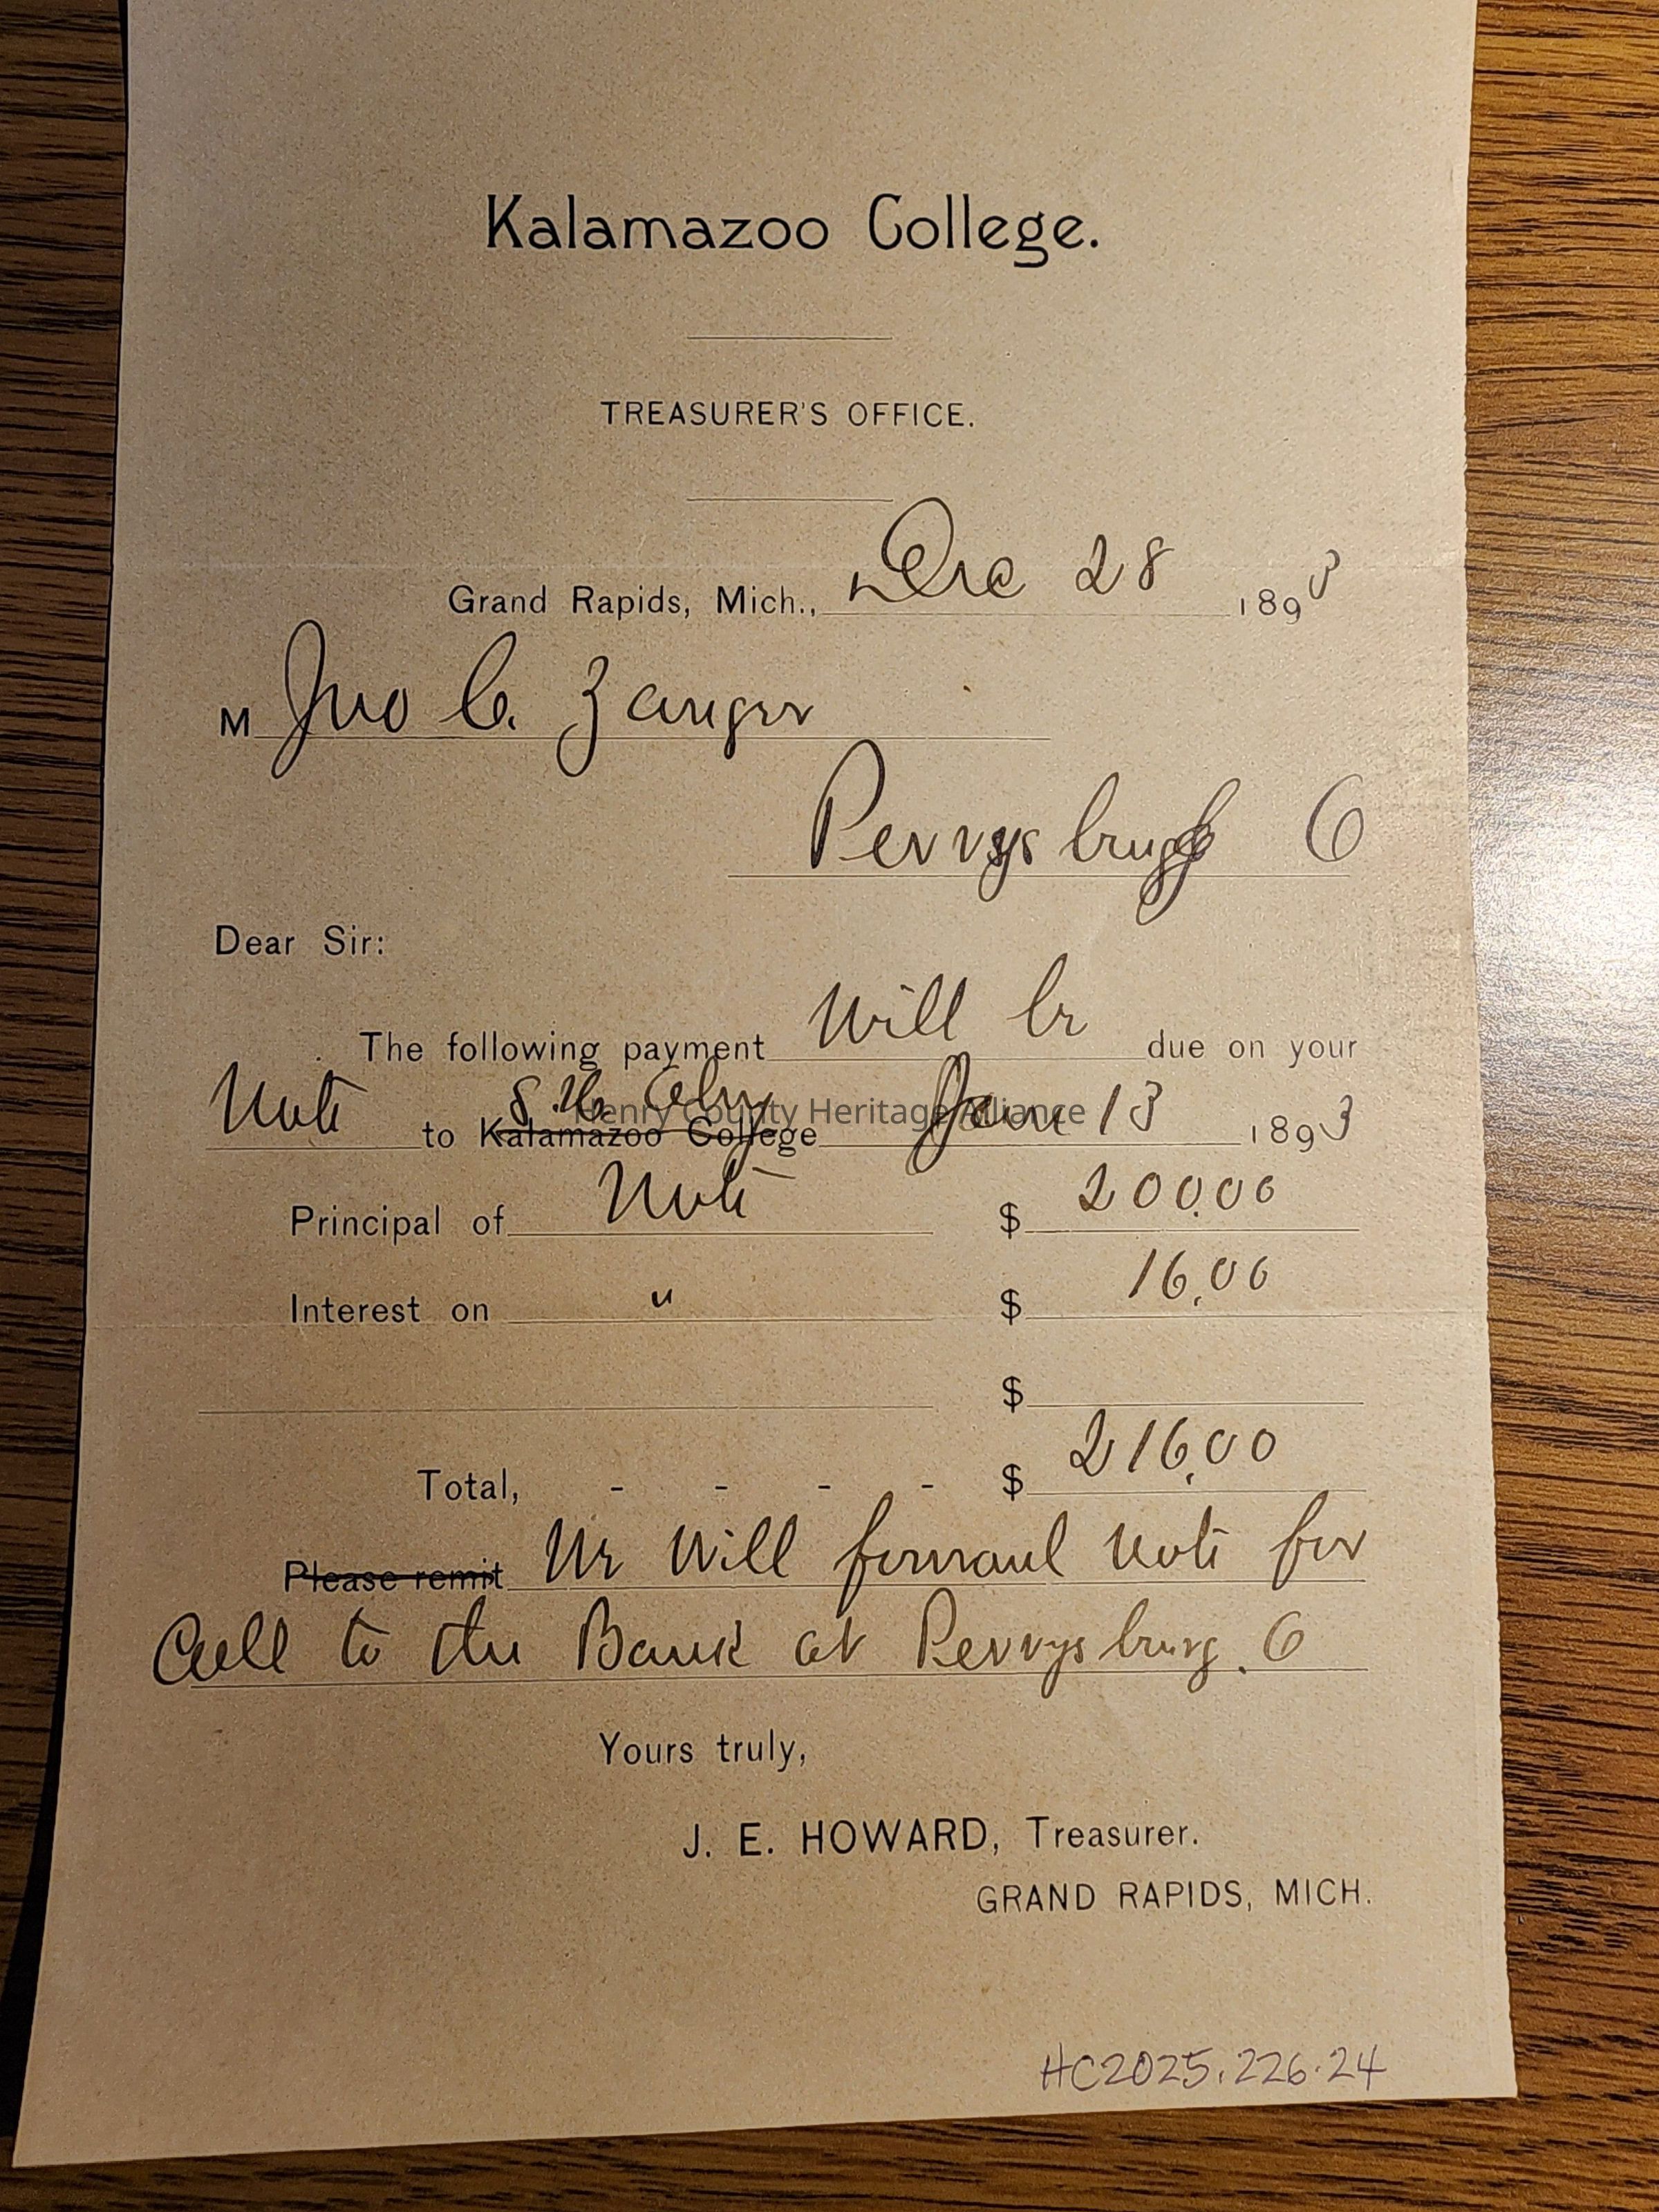 Kalamazoo College.
TREASURER'S OFFICE.
Grand Rapids, Mich., Dec 28 1893
M Jno C. Zanger
Perrysburgh O
Dear Sir:
The following payment Will be due on your
Note to Kalamazoo College S. H. Jan 13 1893
Henry County Heritage Alliance
Principal of Note $ 200.00
Interest on " $ 16.00
$
Total, - - - - $ 216.00
Please remit We Will forward Note for
Coll to the Bank at Perrysburg. O
Yours truly,
J. E. HOWARD, Treasurer.
GRAND RAPIDS, MICH.
HC2025.226.24